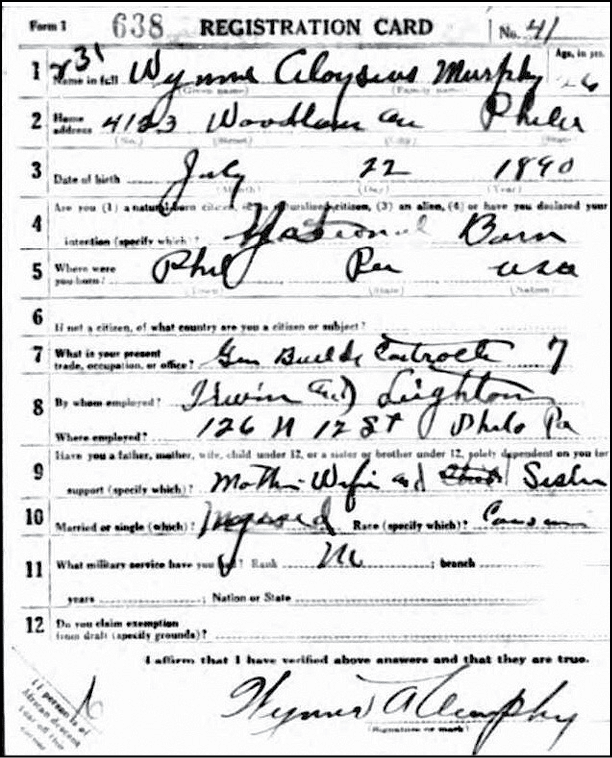 Form 1 638 REGISTRATION CARD No. 41
1 Name in full Wynne Aloysius Murphy Age, in yrs. 26
(Given name) (Family name)
2 Home address 4123 Woodlawn av Phila
(No.) (Street) (City) (State)
3 Date of birth July 22 1890
(Month) (Day) (Year)
4 Are you (1) a natural-born citizen, (2) a naturalized citizen, (3) an alien, (4) or have you declared your
intention (specify which)? National Born
5 Where were you born? Phil Pa USA
(Town) (State) (Nation)
6 If not a citizen, of what country are you a citizen or subject?
7 What is your present trade, occupation, or office? Gen Build Contractor 7
8 By whom employed? Irwin and Leighton
Where employed? 126 N 12 St Phila Pa
9 Have you a father, mother, wife, child under 12, or a sister or brother under 12, solely dependent on you for
support (specify which)? Mother Wife and Sister
10 Married or single (which)? Married Race (specify which)?
11 What military service have you had? Rank ; branch
years ; Nation or State
12 Do you claim exemption from draft (specify grounds)?
I affirm that I have verified above answers and that they are true.
Wynne A Murphy
(Signature or mark)
If person is of
African descent
tear off this
corner